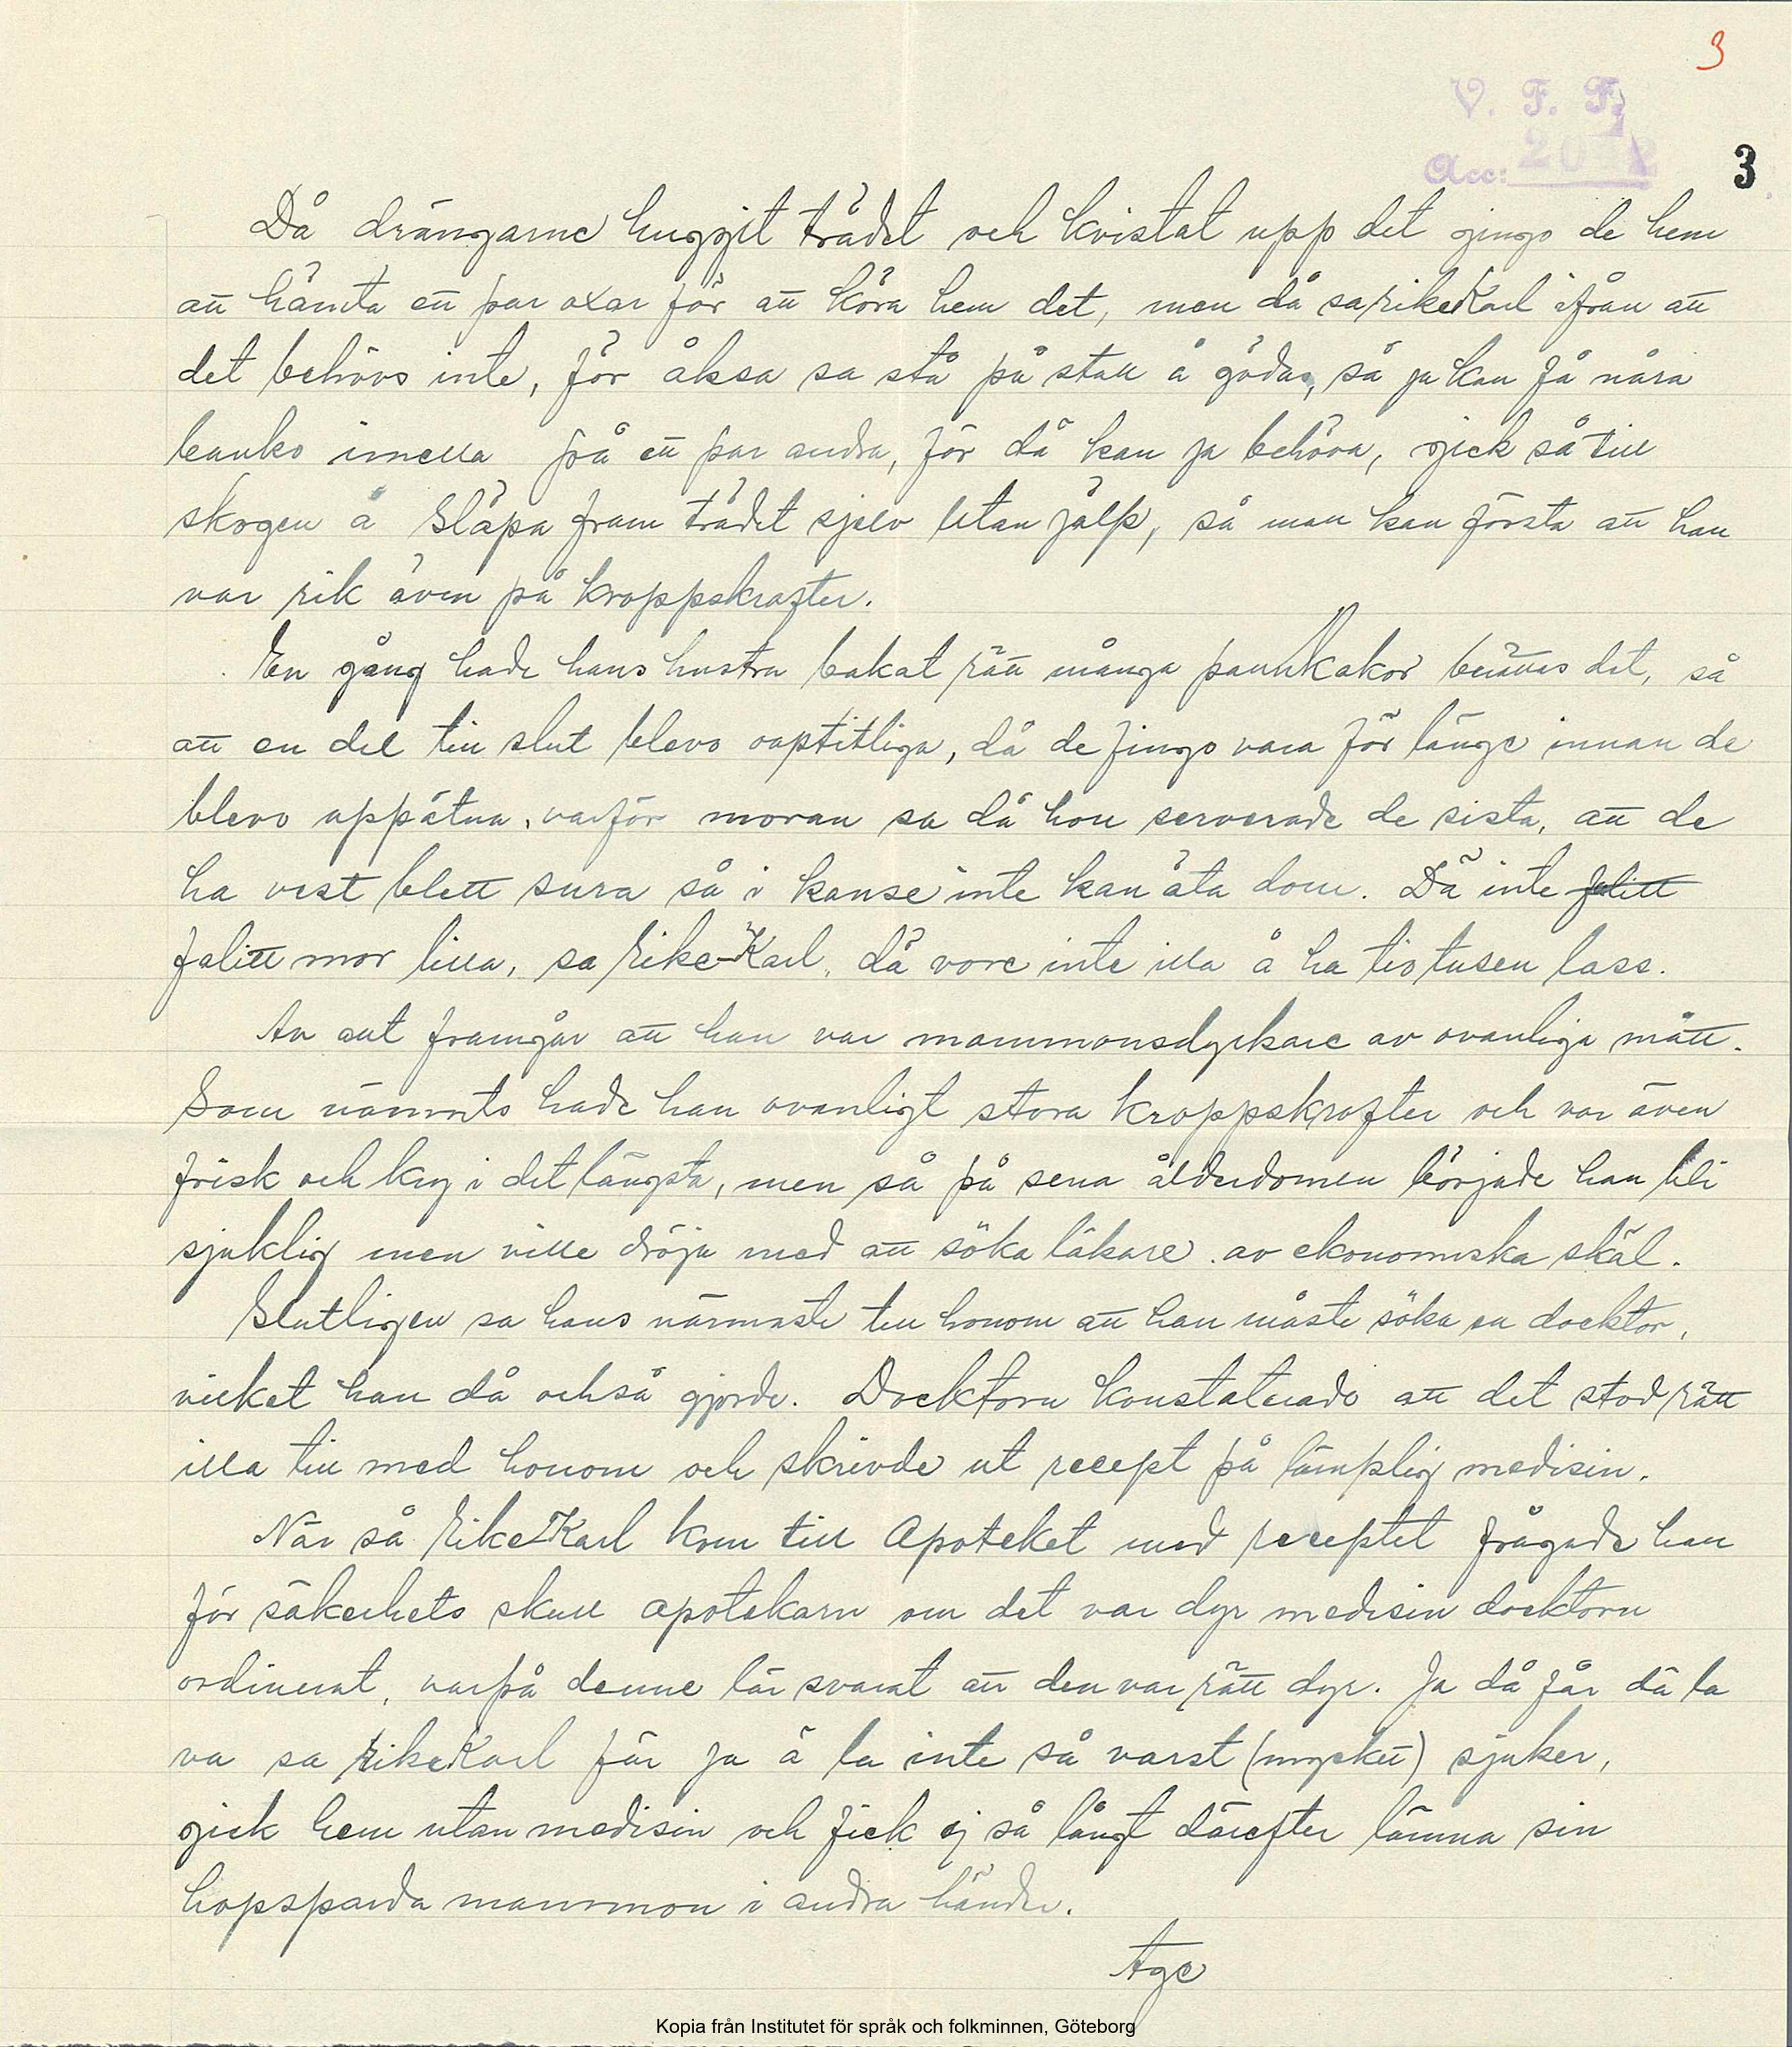 3
V. F. F.
Acc:
3
Då drängarne huggit trädet och kvistat upp det gingo de hem
att hämta ett par oxar för att köra hem det, men då sa rike Karl ifrån att
det behövs inte, för åksa sa stå på stall å gödas, så ja kan få nåra
banko imella på ett par andra, för då kan ja behöva, gick så till
skogen å släpa fram trädet sjelv utan jälp, så man kan förstå att han
var rik även på kroppskrafter.
En gång hade hans hustru bakat rätt många pannkakor berättas det, så
att en del till slut blevo oaptitliga, då de fingo vara för länge innan de
blevo uppätna, varför moran sa då hon serverade de sista, att de
ha vest blett sura så i kanse inte kan äta dom. Dä inte falitt
falitt mor lilla, sa Rike-Karl, dä vore inte illa å ha tio tusen lass.
Av allt framgår att han var mammonsdyrkare av ovanliga mått.
Som nämnts hade han ovanligt stora kroppskrafter och var även
frisk och kry i det längsta, men så på sena ålderdomen började han bli
sjuklig men ville dröja med att söka läkare av ekonomiska skäl.
Slutligen sa hans närmaste till honom att han måste söka en docktor,
vilket han då också gjorde. Docktorn konstaterade att det stod rätt
illa till med honom och skrivde ut recept på lämplig medisin.
När så Rike-Karl kom till Apoteket med receptet frågade han
för säkerhets skull apotekarn om det var dyr medisin docktorn
ordinerat, varpå denne lär svarat att den var rätt dyr. Ja då får dä la
va sa rike Karl för ja ä la inte så varst (mycket) sjuker,
gick hem utan medisin och fick ej så långt därefter lämna sin
hopsparda mammon i andra händer.
Age
Kopia från Institutet för språk och folkminnen, Göteborg